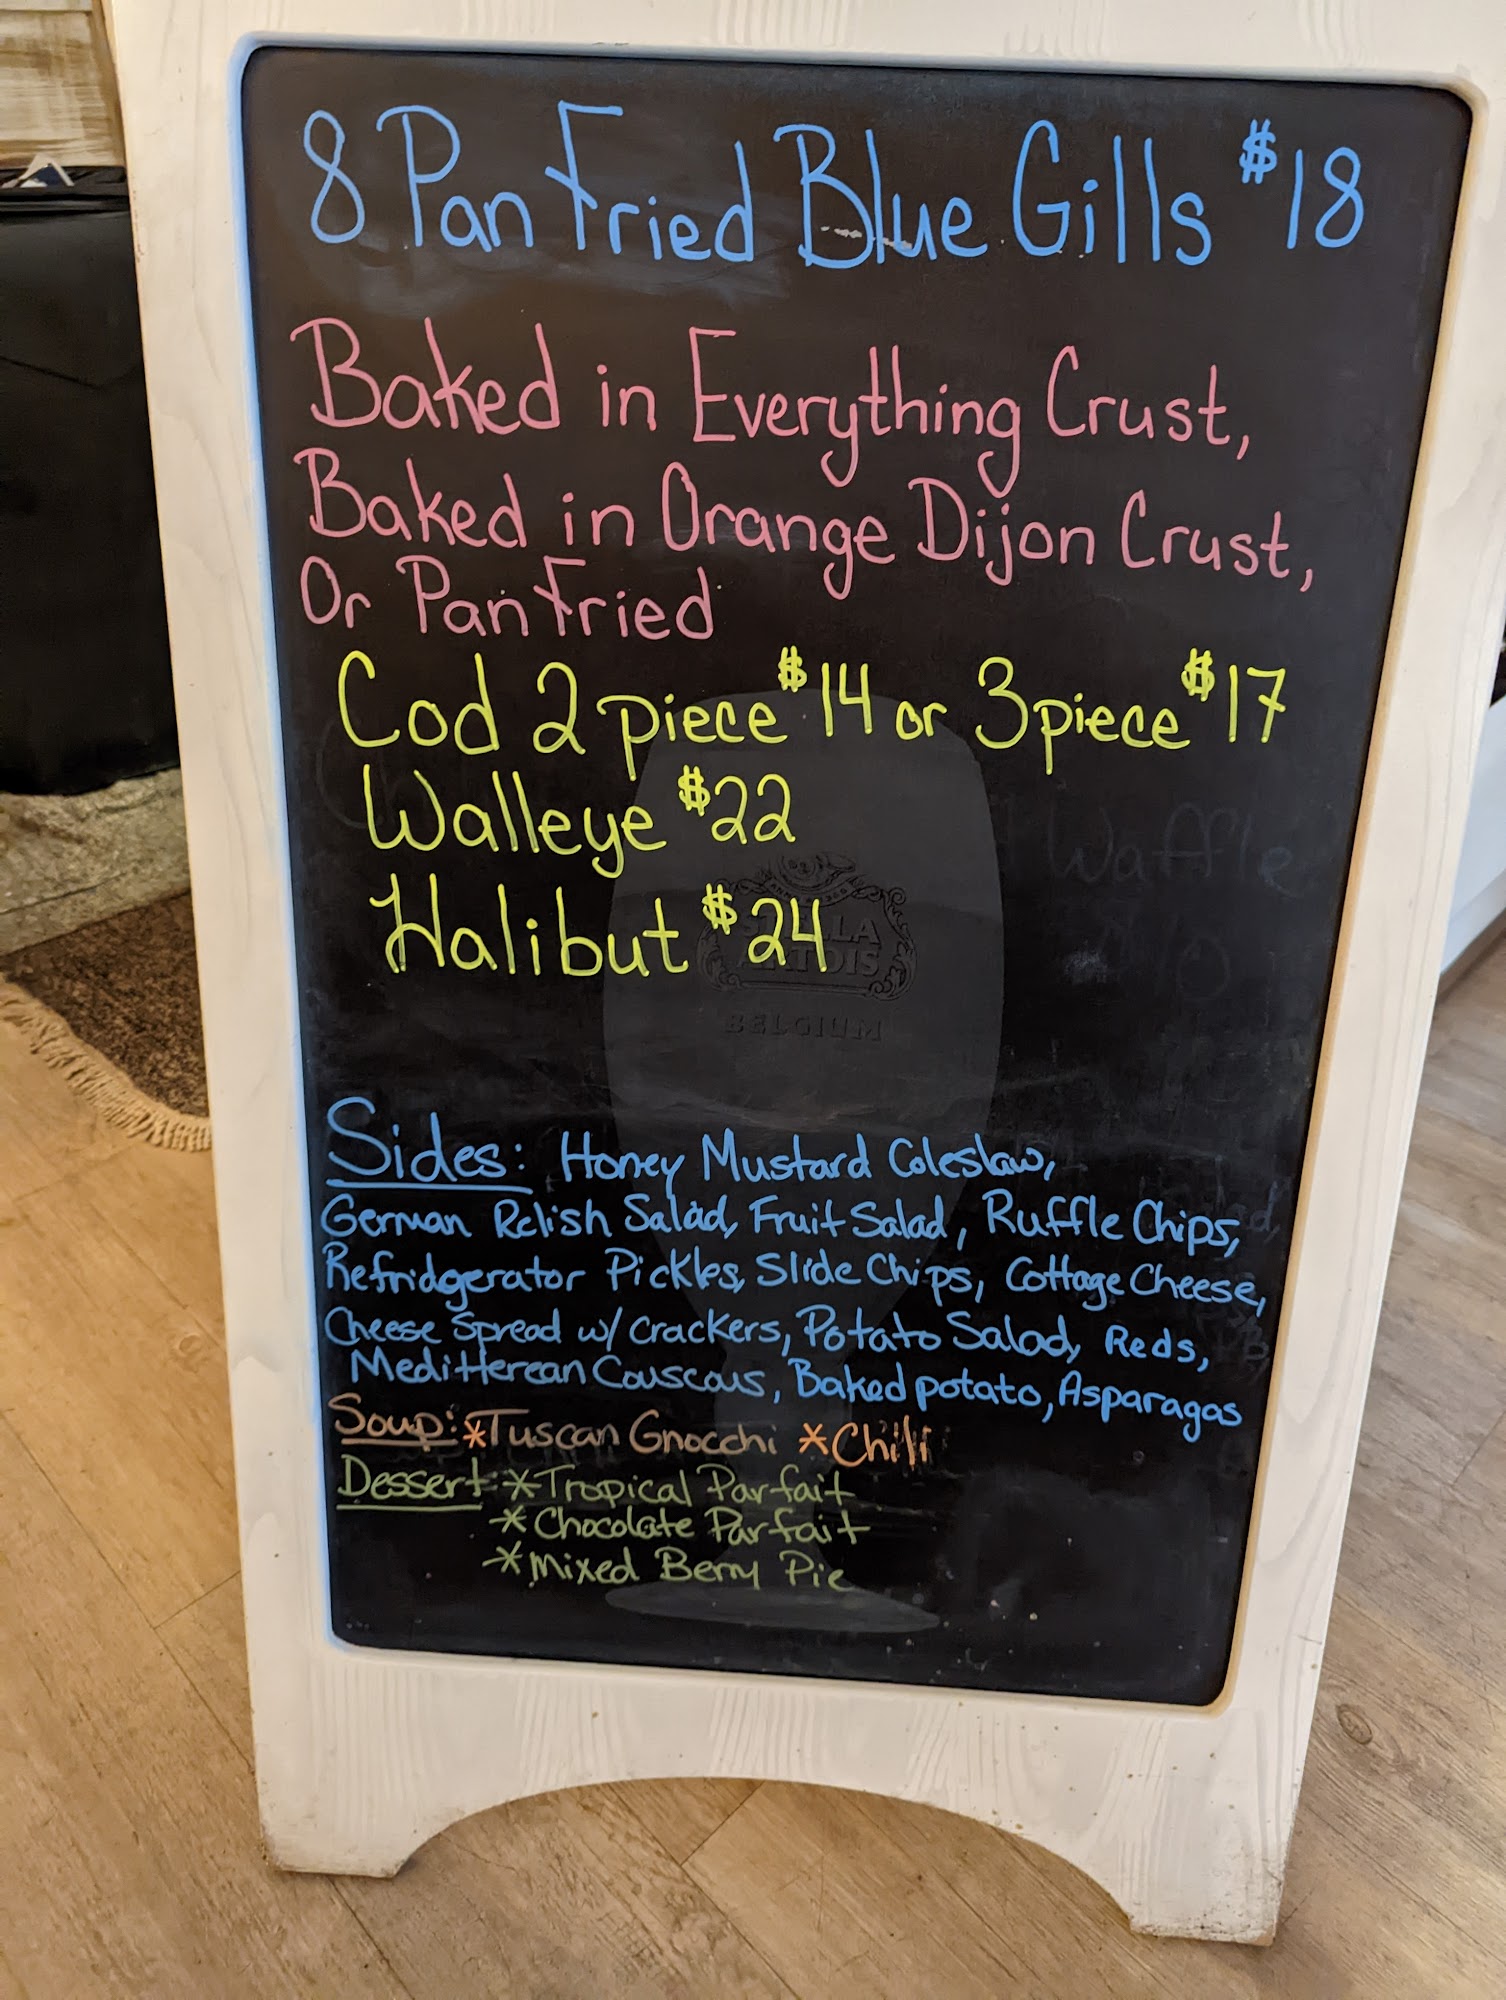 8 Pan Fried Blue Gills $18
Baked in Everything Crust,
Baked in Orange Dijon Crust,
Or Pan Fried
Cod 2 piece $14 or 3 piece $17
Walleye $22
Halibut $24
Waffle
STELLA
ARTOIS
BELGIUM
Sides: Honey Mustard Coleslaw,
German Relish Salad, Fruit Salad, Ruffle Chips,
Refridgerator Pickles, Slide Chips, Cottage Cheese,
Cheese Spread w/ crackers, Potato Salad, Reds,
Meditterean Couscous, Baked potato, Asparagas
Soup: *Tuscan Gnocchi *Chili
Dessert: *Tropical Parfait
*Chocolate Parfait
*Mixed Berry Pie